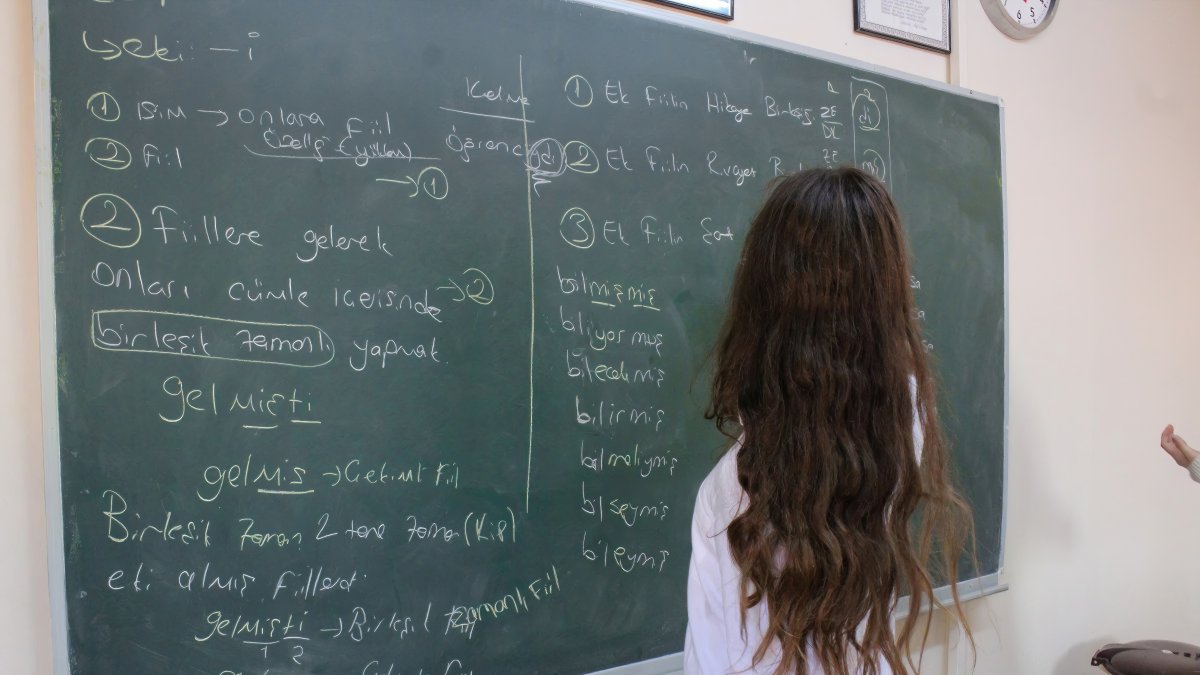 eki: -i
① isim → onlara fiil
özelliği
② Fiil
→ ①
Kelime
Öğrenc di
② Fiillere gelerek
onları cümle içerisinde → ②
birleşik zamanlı yapmak.
gelmişti
gelmiş → Çekimli Fiil
Birleşik zaman 2 tane zaman (kip)
eki almış fiillerdir.
gelmişti → Birleşik zamanlı Fiil
1 2
① Ek Fiilin Hikaye Birleşiği
di
② Ek Fiilin Rivayet
③ Ek Fiilin Şart
bilmişmiş
biliyormuş
bilecekmiş
bilirmiş
bilmeliymiş
bilseymiş
bileymiş
6 5 4